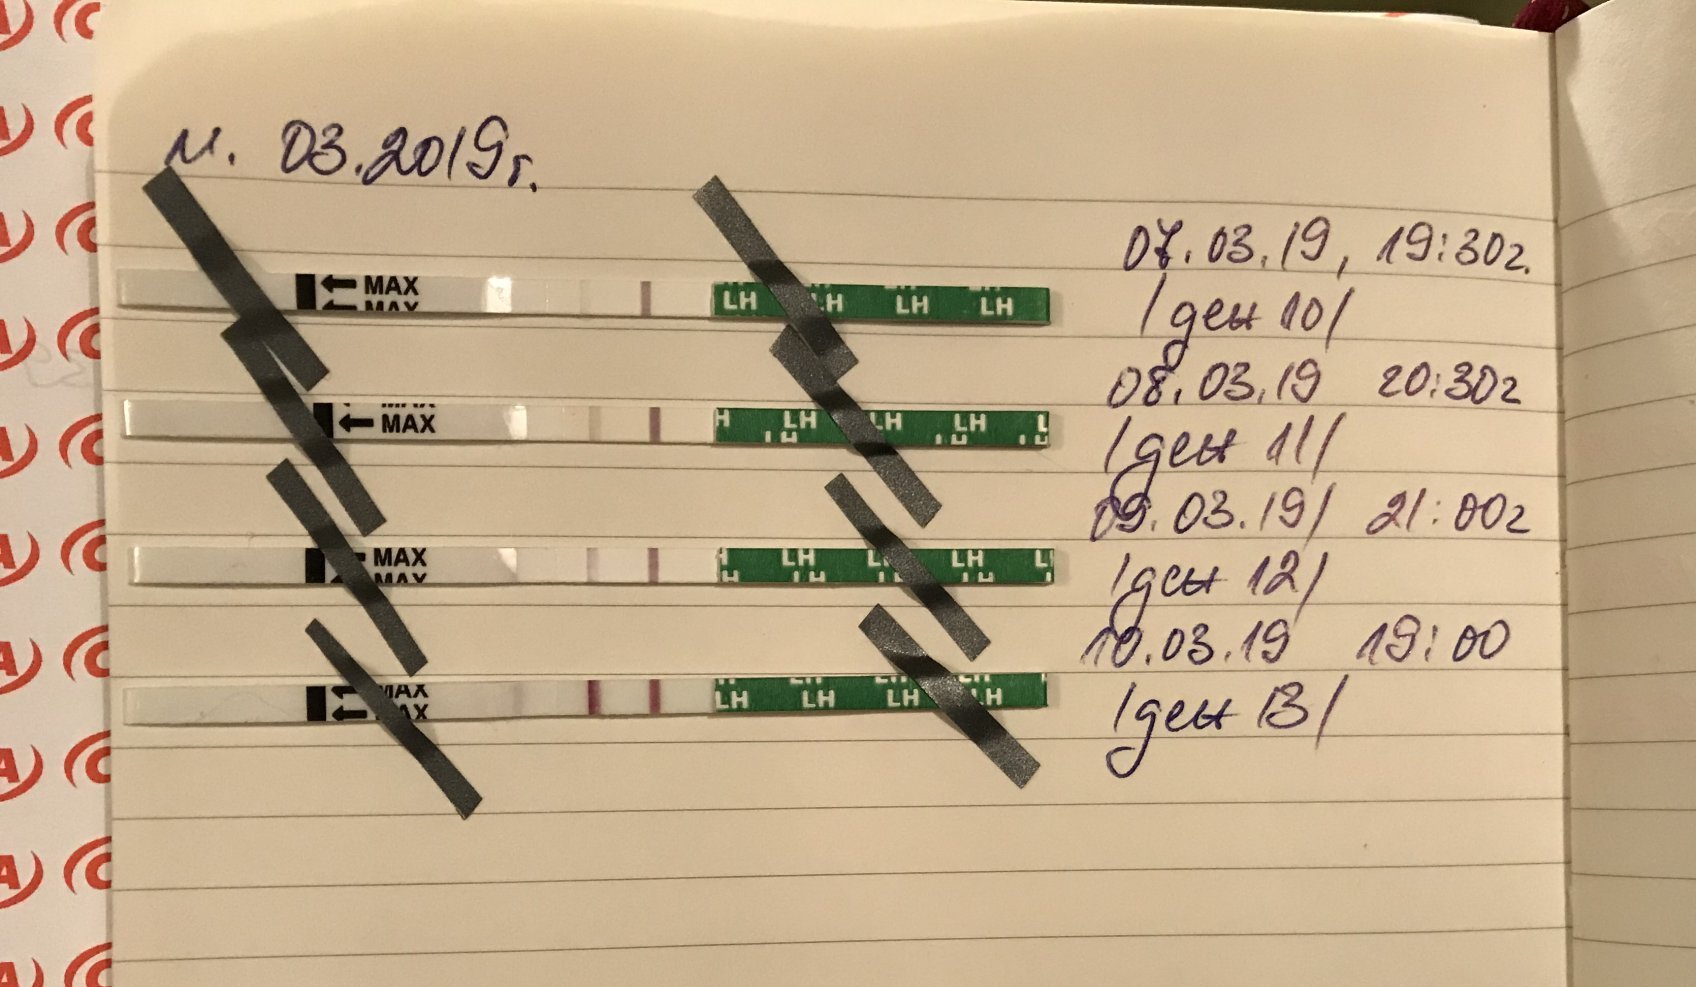 м. 03.2019г.
07.03.19, 19:30г.
/ден 10/
MAX
MAX
LH LH LH LH
08.03.19 20:30г
/ден 11/
MAX
MAX
H LH LH LH L
LH LH LH
09.03.19/ 21:00г
/ден 12/
MAX
MAX
LH LH
LH LH LH
10.03.19 19:00
/ден 13/
MAX
MAX
LH LH LH
LH LH LH LH